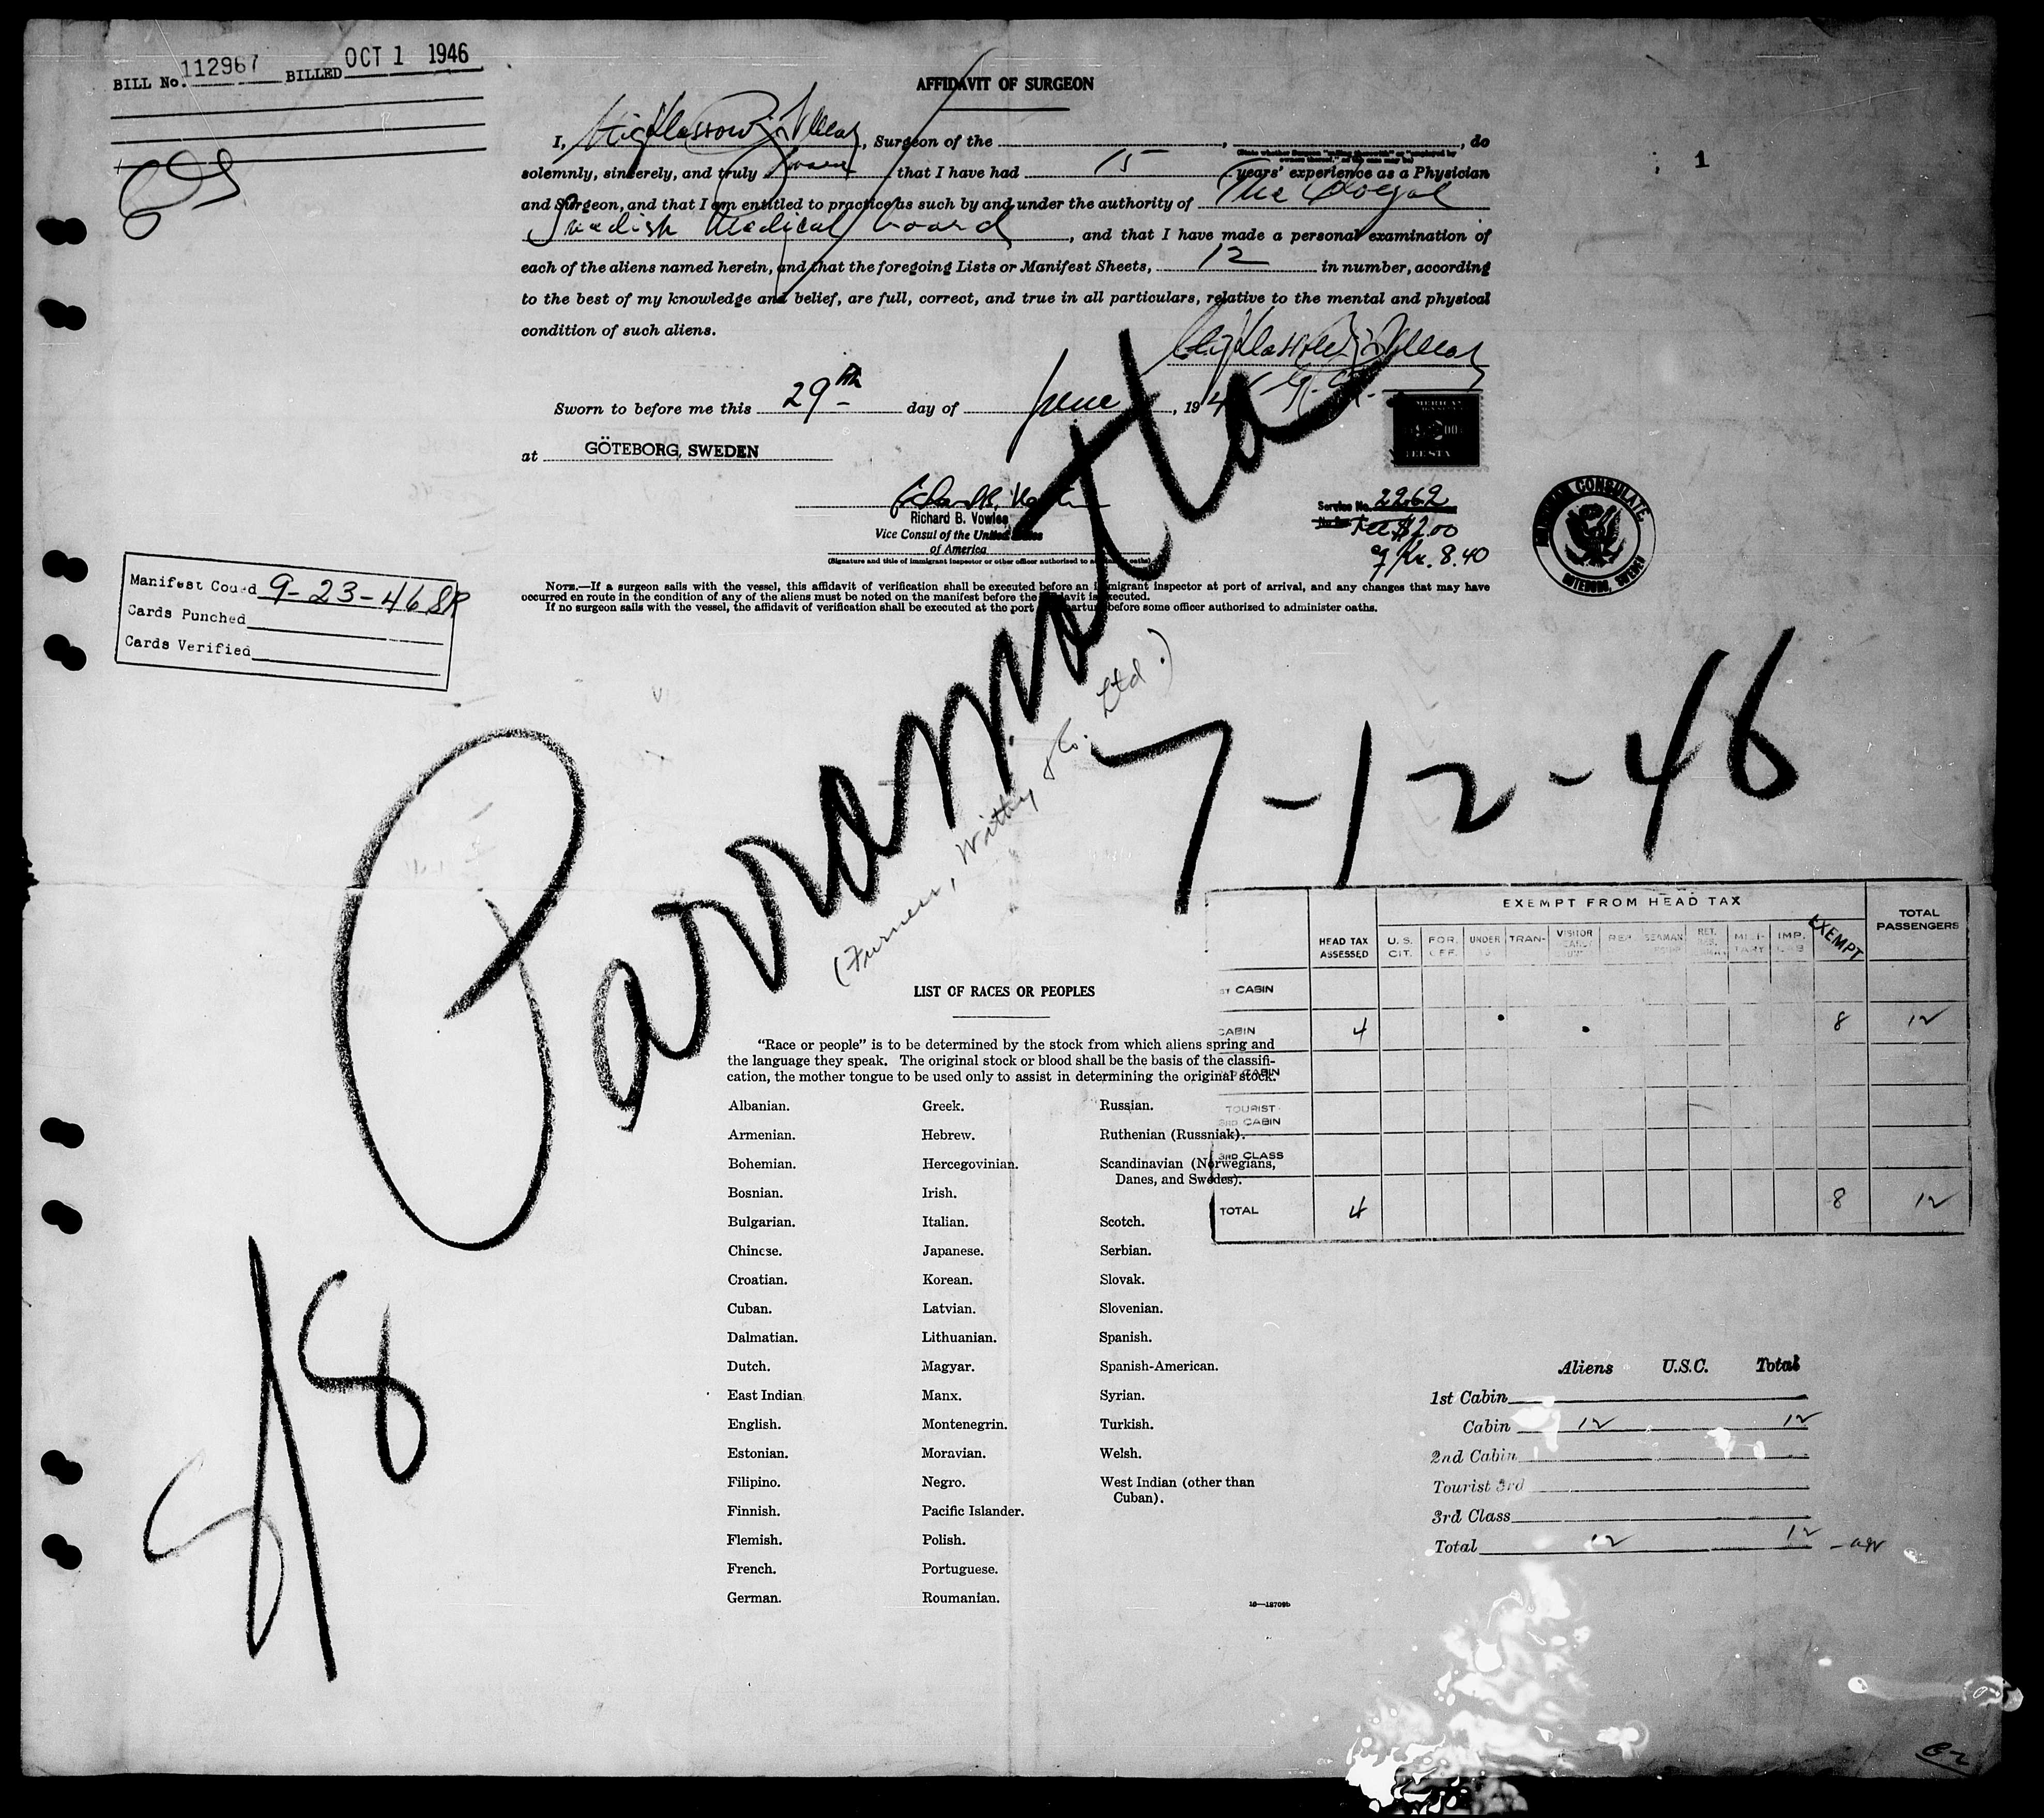 BILL No. 112967 BILLED OCT 1 1946
AFFIDAVIT OF SURGEON
I, , Surgeon of the , , do
solemnly, sincerely, and truly that I have had 15 years' experience as a Physician
and Surgeon, and that I am entitled to practice as such by and under the authority of The Royal
Swedish Medical board, and that I have made a personal examination of
each of the aliens named herein, and that the foregoing Lists or Manifest Sheets, 12 in number, according
to the best of my knowledge and belief, are full, correct, and true in all particulars, relative to the mental and physical
condition of such aliens.
Sworn to before me this 29th day of June, 194
at GÖTEBORG, SWEDEN
Richard B. Vowles
Vice Consul of the United States
of America
(Signature and title of immigrant inspector or other officer authorized to administer oaths)
Service No. 2262
Fee $2.00
Kr. 8.40
AMERICAN CONSULATE
GOTEBORG, SWEDEN
1
NOTE.—If a surgeon sails with the vessel, this affidavit of verification shall be executed before an immigrant inspector at port of arrival, and any changes that may have
occurred en route in the condition of any of the aliens must be noted on the manifest before the affidavit is executed.
If no surgeon sails with the vessel, the affidavit of verification shall be executed at the port of departure before some officer authorized to administer oaths.
Manifest Coded 9-23-46 SR
Cards Punched
Cards Verified
Parramatta
(Furness, Withy & Co. Ltd.)
7-12-46
EXEMPT FROM HEAD TAX
HEAD TAX ASSESSED U.S. CIT. FOR. OFF. UNDER 16 TRAN- VISITOR REP. SEAMAN RET. RES. MILI-TARY IMP. LAB EXEMPT TOTAL PASSENGERS
1ST CABIN
CABIN 4 8 12
2ND CABIN
TOURIST
3RD CABIN
3RD CLASS
TOTAL 4 8 12
LIST OF RACES OR PEOPLES
"Race or people" is to be determined by the stock from which aliens spring and
the language they speak. The original stock or blood shall be the basis of the classifi-
cation, the mother tongue to be used only to assist in determining the original stock.
Albanian. Greek. Russian.
Armenian. Hebrew. Ruthenian (Russniak).
Bohemian. Hercegovinian. Scandinavian (Norwegians,
Danes, and Swedes).
Bosnian. Irish.
Bulgarian. Italian. Scotch.
Chinese. Japanese. Serbian.
Croatian. Korean. Slovak.
Cuban. Latvian. Slovenian.
Dalmatian. Lithuanian. Spanish.
Dutch. Magyar. Spanish-American.
East Indian Manx. Syrian.
English. Montenegrin. Turkish.
Estonian. Moravian. Welsh.
Filipino. Negro. West Indian (other than
Cuban).
Finnish. Pacific Islander.
Flemish. Polish.
French. Portuguese.
German. Roumanian.
16—18709b
Aliens U.S.C. Total
1st Cabin
Cabin 12 12
2nd Cabin
Tourist 3rd
3rd Class
Total 12 12